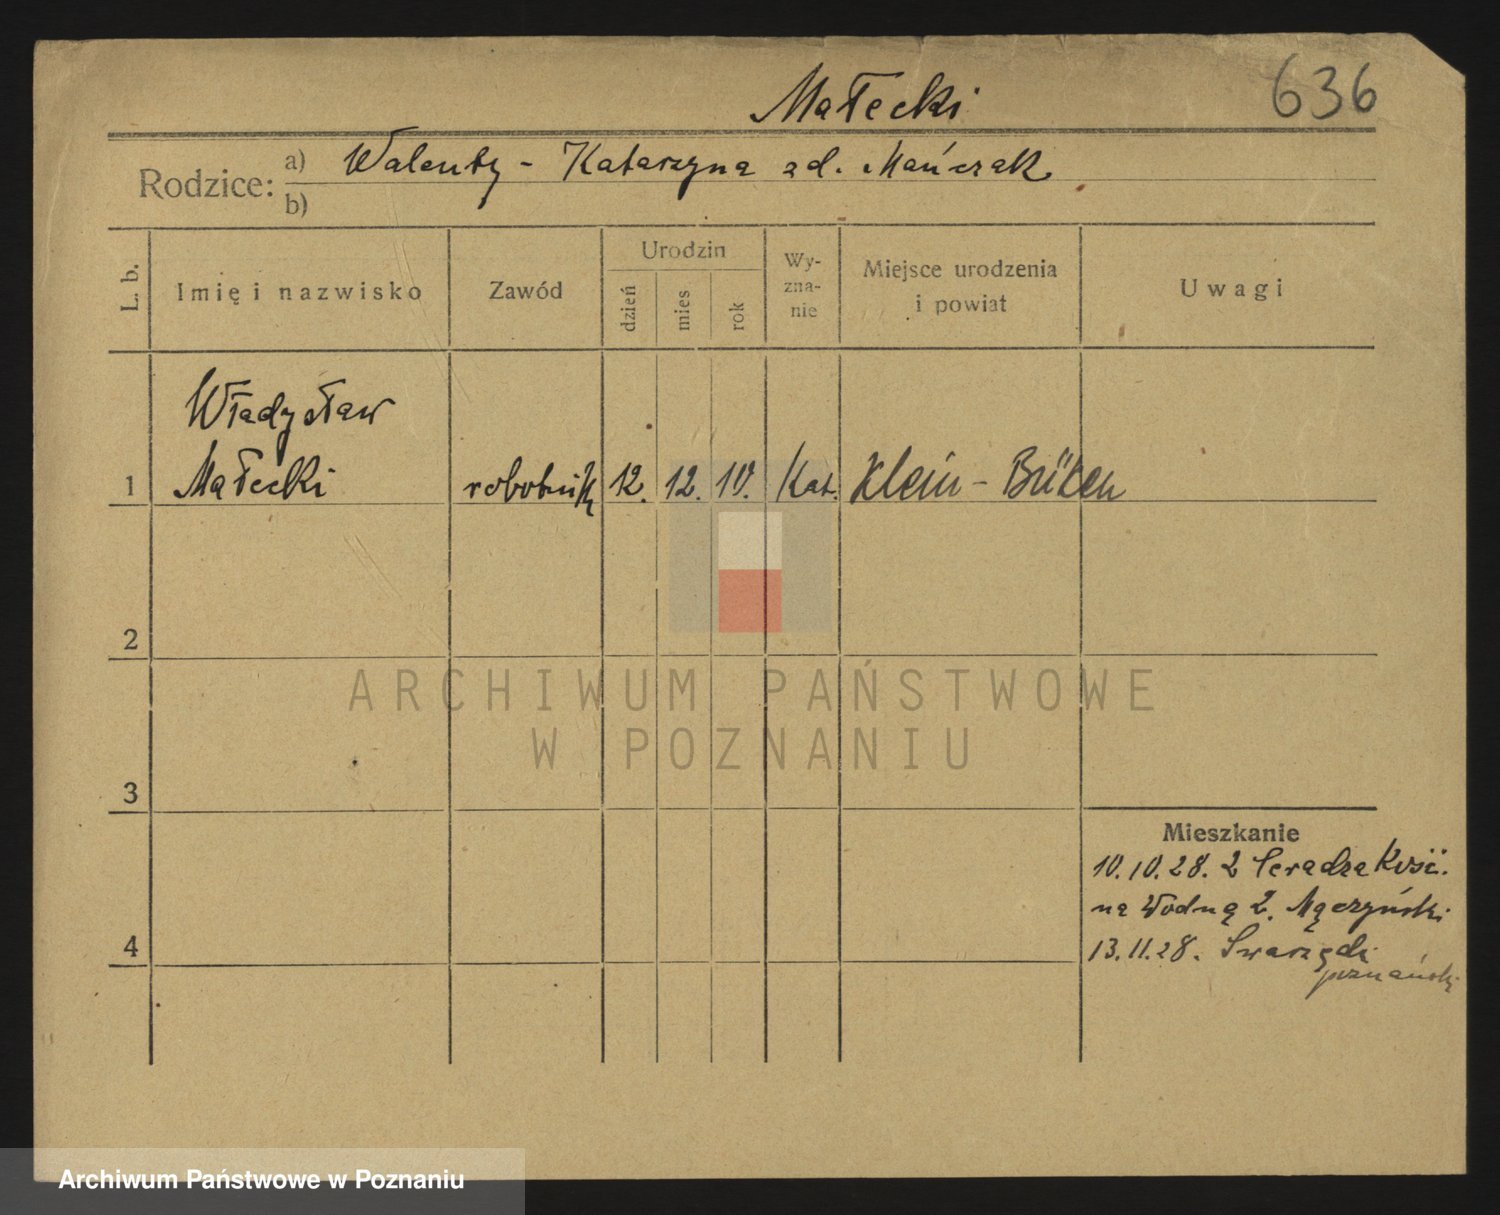 Małecki
636
Rodzice:
a) Walenty - Katarzyna zd. Mańczak
b)
L. b.
Imię i nazwisko
Zawód
Urodzin
dzień
mies
rok
Wy-
zna-
nie
Miejsce urodzenia
i powiat
Uwagi
Władysław
1 Małecki robotnik 12. 12. 10. Kat. Klein - Büken
2
3
4
Mieszkanie
10.10.28. z Sieradza Kość.
na Wodną 2. Mączyński
13.11.28. Swarzędz
poznański
ARCHIWUM PAŃSTWOWE
W POZNANIU
Archiwum Państwowe w Poznaniu